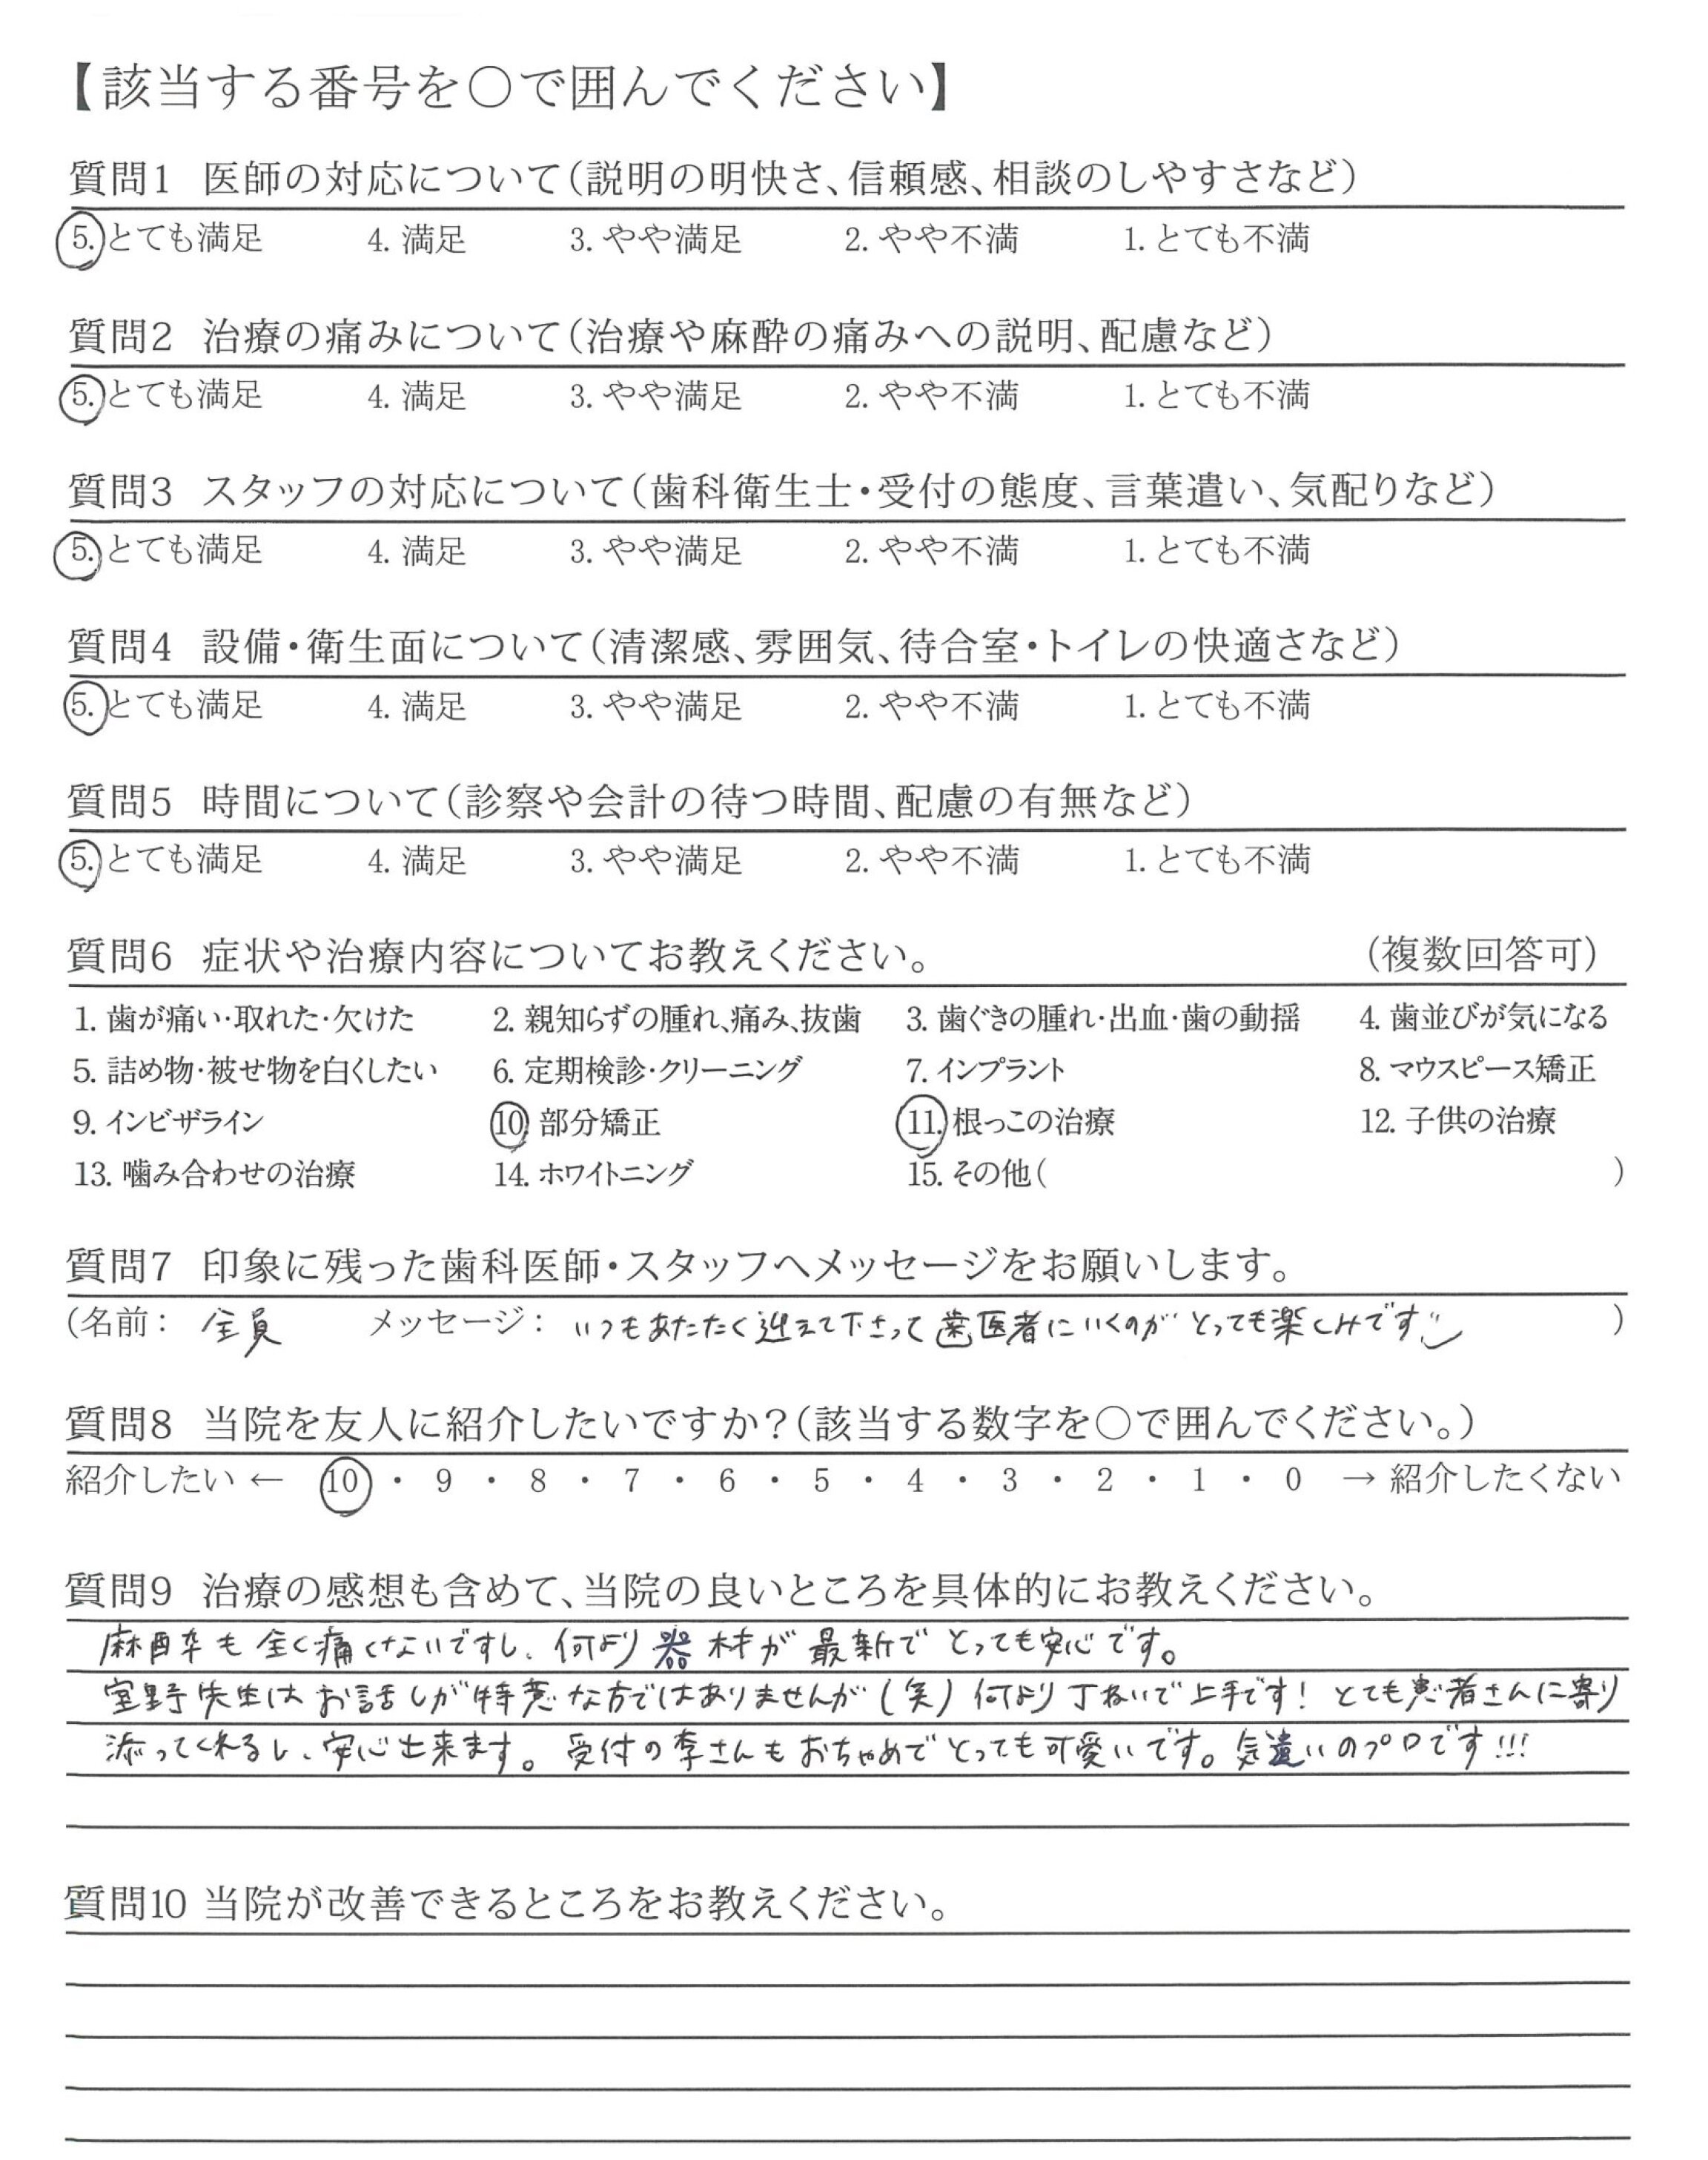 【該当する番号を〇で囲んでください】
質問1 医師の対応について(説明の明快さ、信頼感、相談のしやすさなど)
5. とても満足 4. 満足 3. やや満足 2. やや不満 1. とても不満
質問2 治療の痛みについて(治療や麻酔の痛みへの説明、配慮など)
5. とても満足 4. 満足 3. やや満足 2. やや不満 1. とても不満
質問3 スタッフの対応について(歯科衛生士・受付の態度、言葉遣い、気配りなど)
5. とても満足 4. 満足 3. やや満足 2. やや不満 1. とても不満
質問4 設備・衛生面について(清潔感、雰囲気、待合室・トイレの快適さなど)
5. とても満足 4. 満足 3. やや満足 2. やや不満 1. とても不満
質問5 時間について(診察や会計の待つ時間、配慮の有無など)
5. とても満足 4. 満足 3. やや満足 2. やや不満 1. とても不満
質問6 症状や治療内容についてお教えください。 (複数回答可)
1. 歯が痛い・取れた・欠けた 2. 親知らずの腫れ、痛み、抜歯 3. 歯ぐきの腫れ・出血・歯の動揺 4. 歯並びが気になる
5. 詰め物・被せ物を白くしたい 6. 定期検診・クリーニング 7. インプラント 8. マウスピース矯正
9. インビザライン 10. 部分矯正 11. 根っこの治療 12. 子供の治療
13. 噛み合わせの治療 14. ホワイトニング 15. その他( )
質問7 印象に残った歯科医師・スタッフへメッセージをお願いします。
(名前: 全員 メッセージ: いつもあたたく迎えて下さって歯医者にいくのがとっても楽しみです )
質問8 当院を友人に紹介したいですか?(該当する数字を〇で囲んでください。)
紹介したい ← 10 ・ 9 ・ 8 ・ 7 ・ 6 ・ 5 ・ 4 ・ 3 ・ 2 ・ 1 ・ 0 → 紹介したくない
質問9 治療の感想も含めて、当院の良いところを具体的にお教えください。
麻酔も全く痛くないですし、何より器材が最新でとっても安心です。
室野先生はお話しが得意な方ではありませんが(笑)何より丁ねいで上手です! とても患者さんに寄り
添ってくれるし、安心出来ます。受付の李さんもおちゃめでとっても可愛いです。気遣いのプロです!!!
質問10 当院が改善できるところをお教えください。